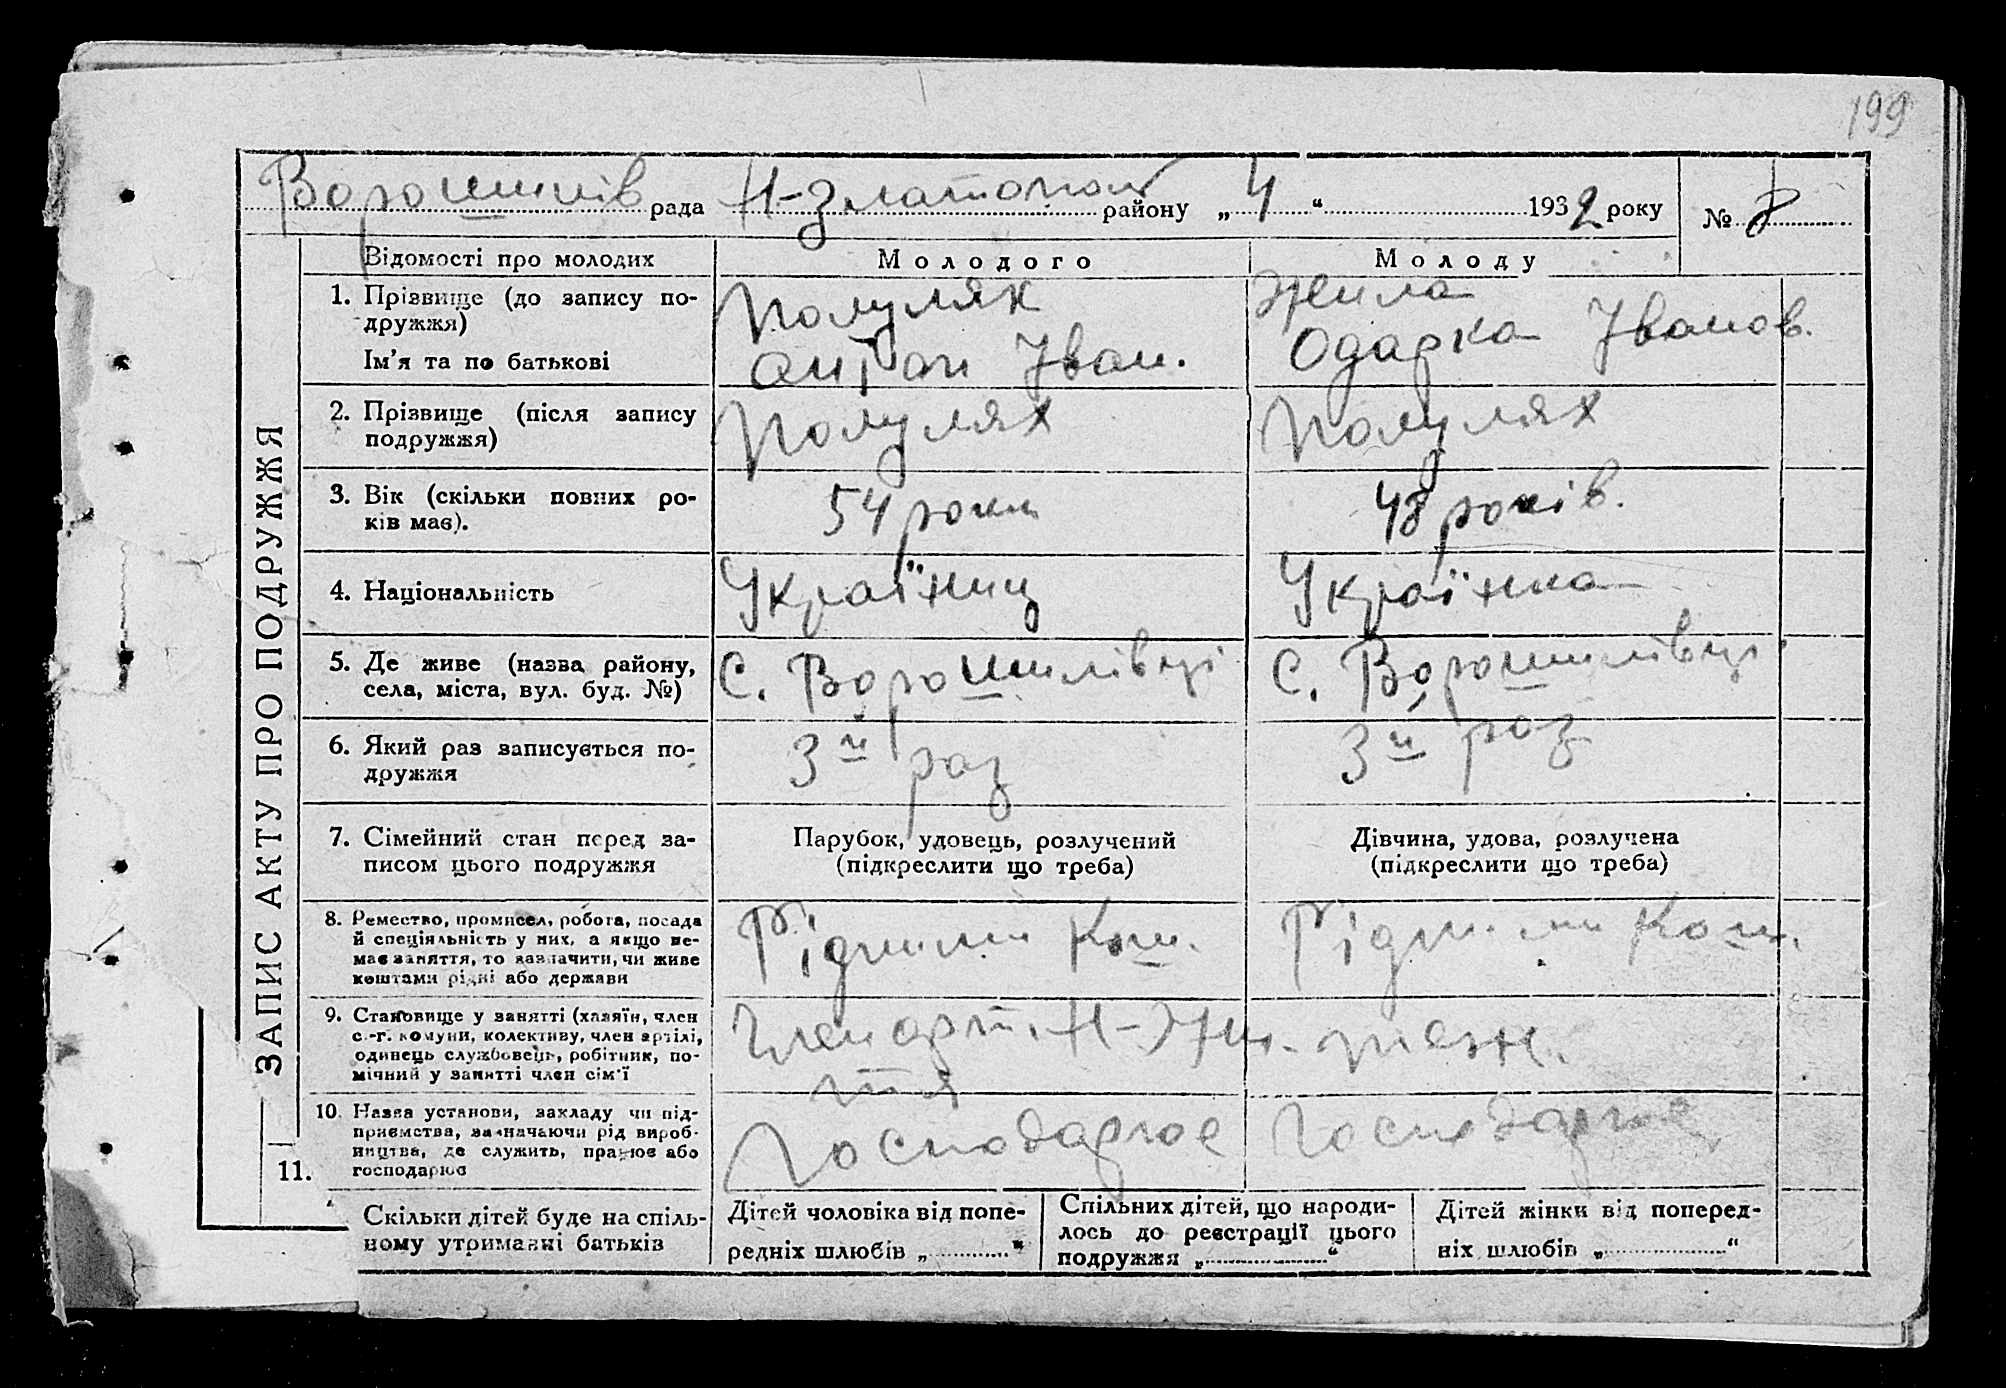 199
Ворошилів рада Н-Златопол району „ 4 “ 1932 року № 8
ЗАПИС АКТУ ПРО ПОДРУЖЖЯ
Відомості про молодих Молодого Молоду
1. Прізвище (до запису по-
дружжя)
Полуляк Жила
Ім’я та по батькові
Антон Іван. Одарка Іванов.
2. Прізвище (після запису
подружжя)
Полулях Полулях
3. Вік (скільки повних ро-
ків має).
54 роки 48 років.
4. Національність
Україниц Українка
5. Де живе (назва району,
села, міста, вул. буд. №)
С. Ворошилівці С. Ворошилівці
6. Який раз записується по-
дружжя
3й раз 3й раз
7. Сімейний стан перед за-
писом цього подружжя
Парубок, удовець, розлучений
(підкреслити що треба)
Дівчина, удова, розлучена
(підкреслити що треба)
8. Ремество, промисел, робота, посада
й спеціяльність у них, а якщо не-
має заняття, то зазначити, чи живе
коштами рідні або держави
Рідними Кош. Рідн. ми Кош.
9. Становище у занятті (хазяїн, член
с.-г. комуни, колективу, член артілі,
одинець службовець, робітник, по-
мічний у занятті член сім’ї
Член арт. Н-Жит- теж.
тя
10. Назва установи, закладу чи під-
приємства, зазначаючи рід вироб-
ництва, де служить, працює або
господарює
Господарює Господарює
11.
Скільки дітей буде на спіль-
ному утриманні батьків
Дітей чоловіка від попе-
редніх шлюбів „ “
Спільних дітей, що народи-
лось до реєстрації цього
подружжя „ “
Дітей жінки від поперед-
ніх шлюбів „ “